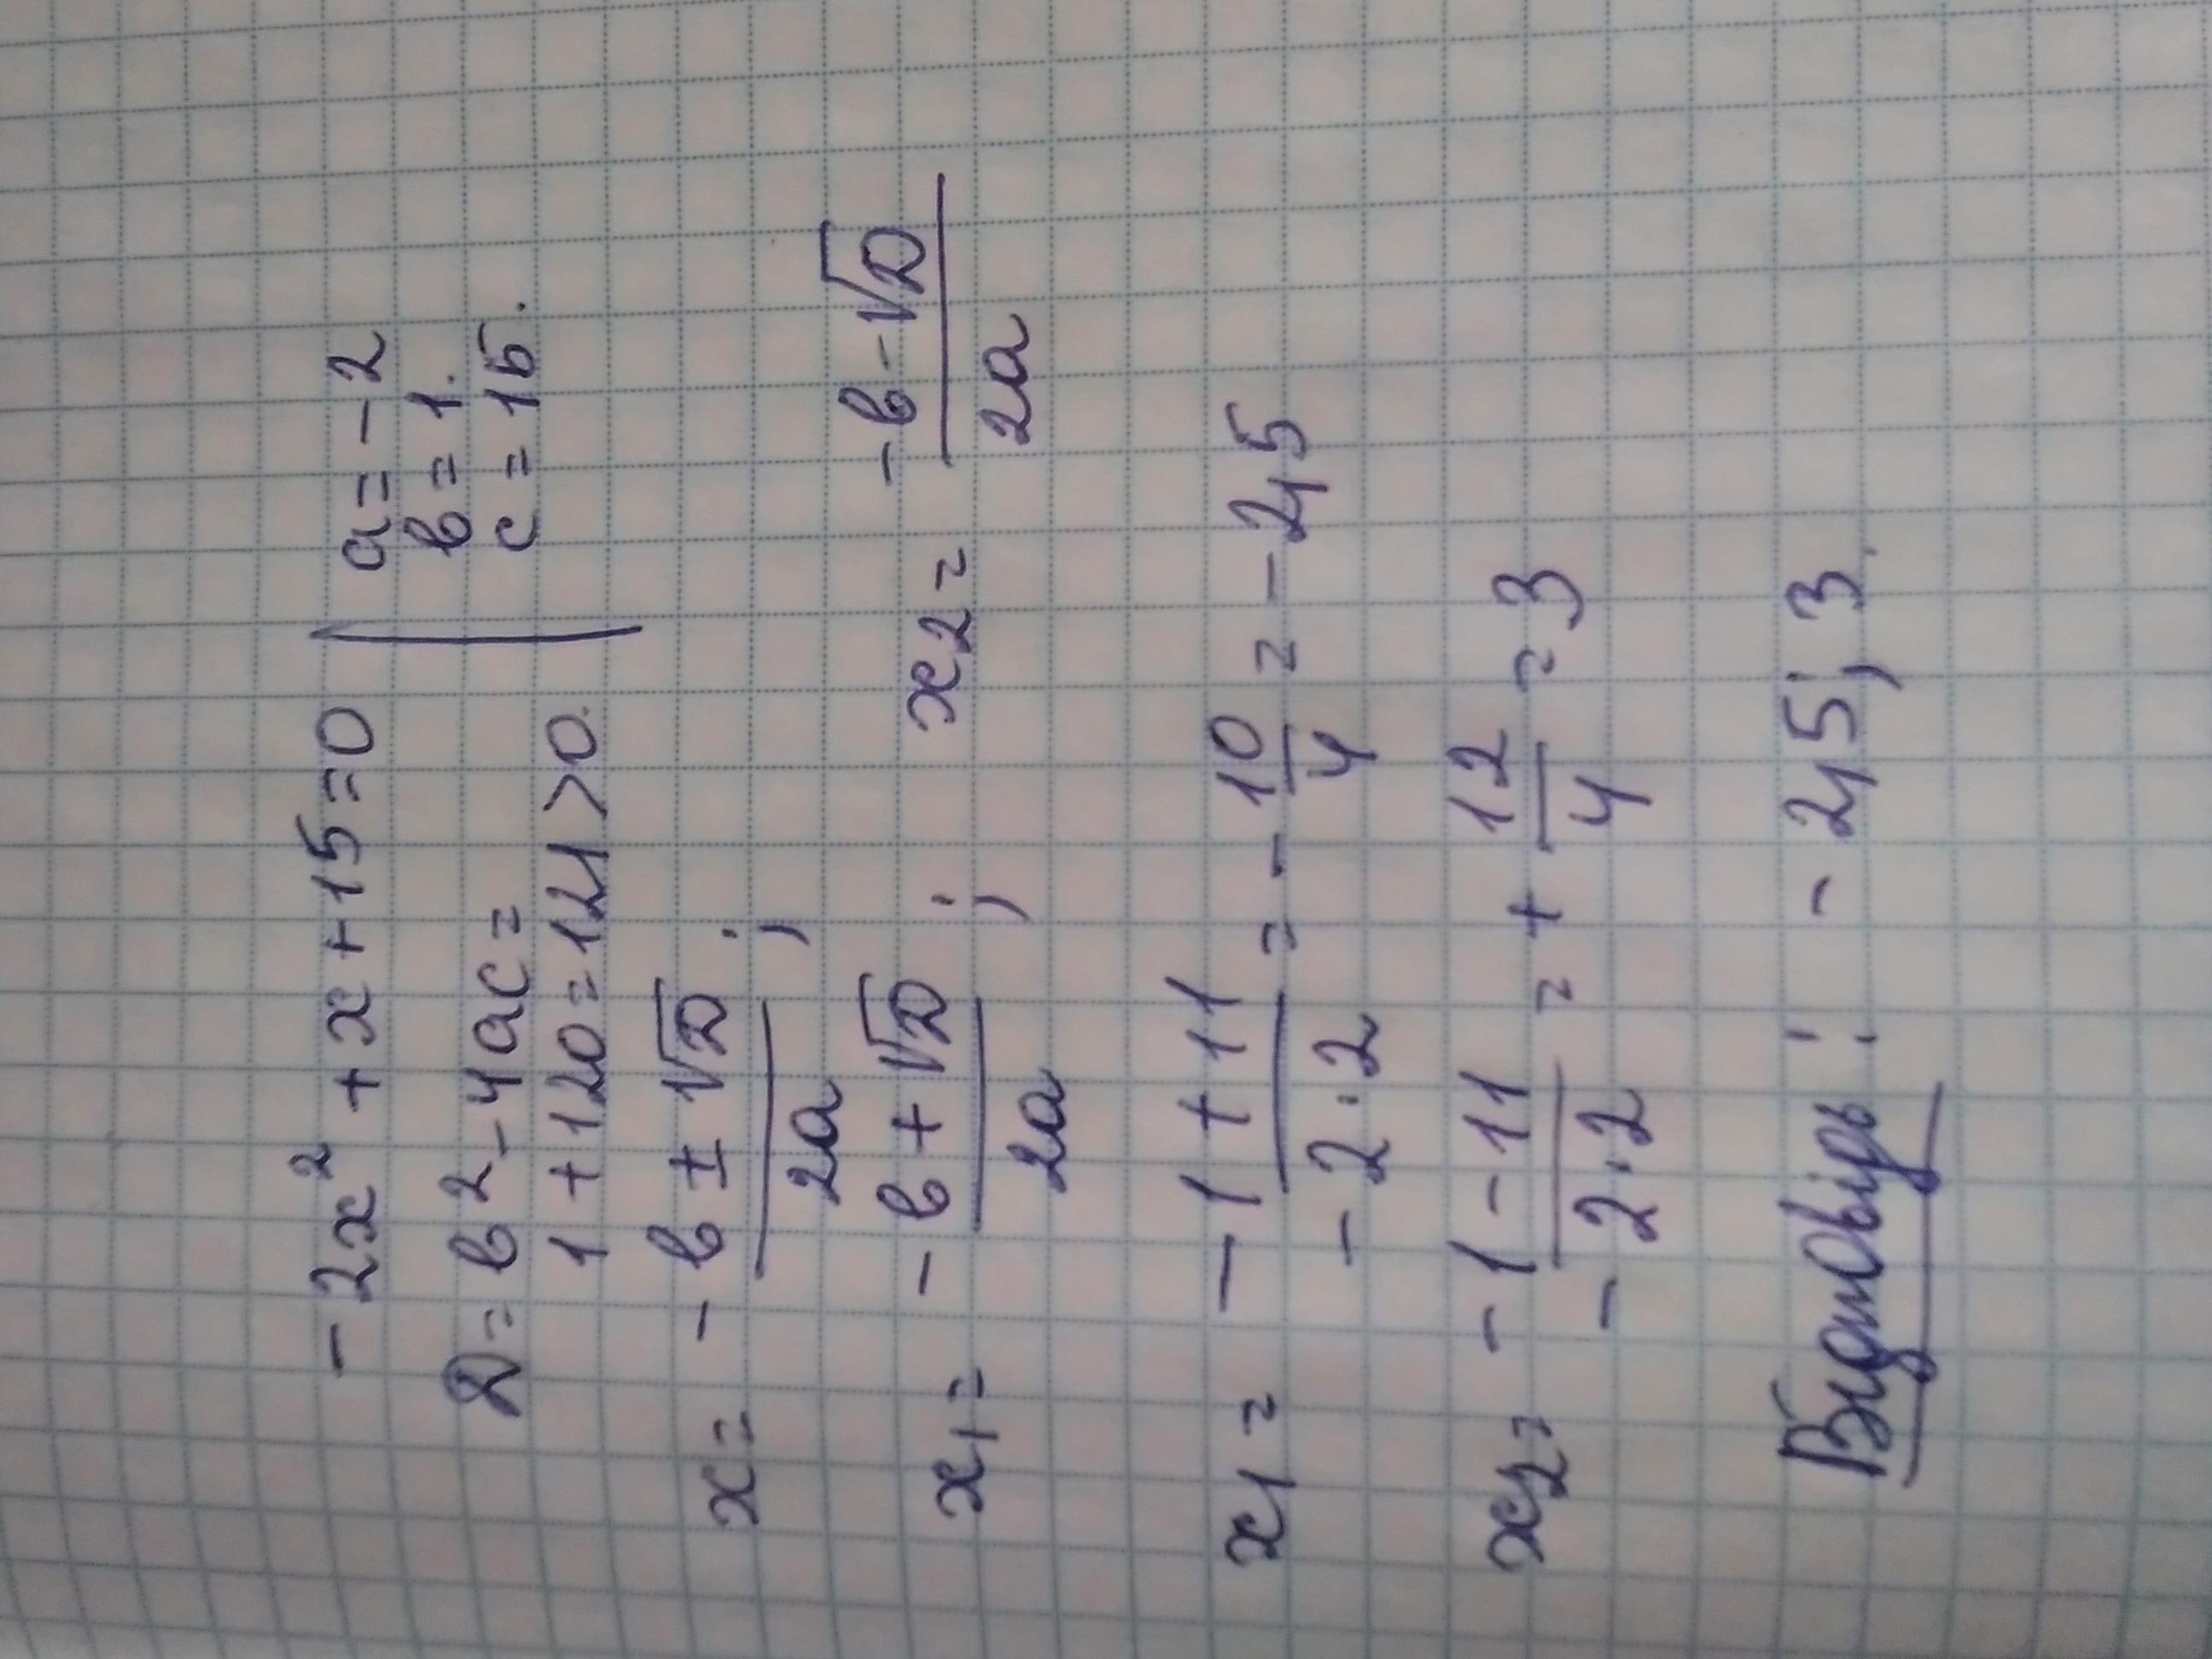 -2x² + x + 15 = 0 | a = -2
D = b² - 4ac = | b = 1.
1 + 120 = 121 > 0. | c = 15.
x = (-b ± √D) / 2a ;
x₁ = (-b + √D) / 2a ; x₂ = (-b - √D) / 2a
x₁ = (-1 + 11) / (-2·2) = - 10/4 = -2,5
x₂ = (-1 - 11) / (-2·2) = + 12/4 = 3
Відповідь: -2,5; 3.